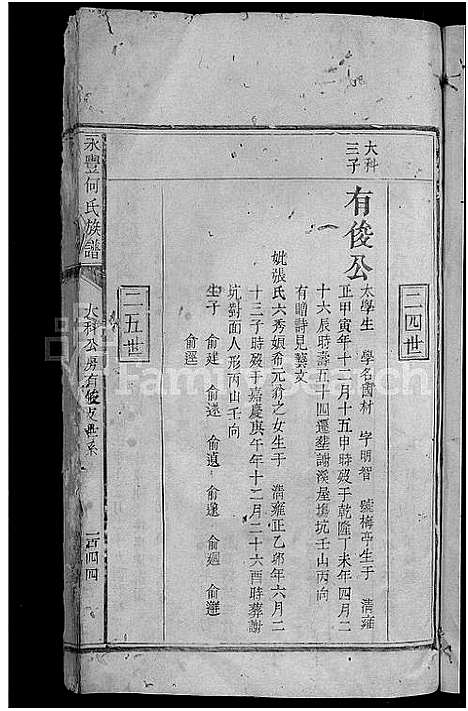 二四世
大科
三子
有俊公
太學生 學名國材 字明智 號梅亭生于 清雍
正甲寅年十二月十五申時歿于乾隆丁未年四月二
十六辰時壽五十四遷塟謝溪屋塲坑壬山丙向
有贈詩見藝文
妣張氏六秀娘希元翁之女生于 清雍正乙卯年六月二
十三子時歿于嘉慶庚午年十二月二十六酉時葬謝
坑對面人形丙山壬向
生子 俞建 俞遠 俞 俞 俞迴 俞
俞逕
二五世
永豐何氏族譜
大科公房有俊支世系
一百四四
FamilySearch